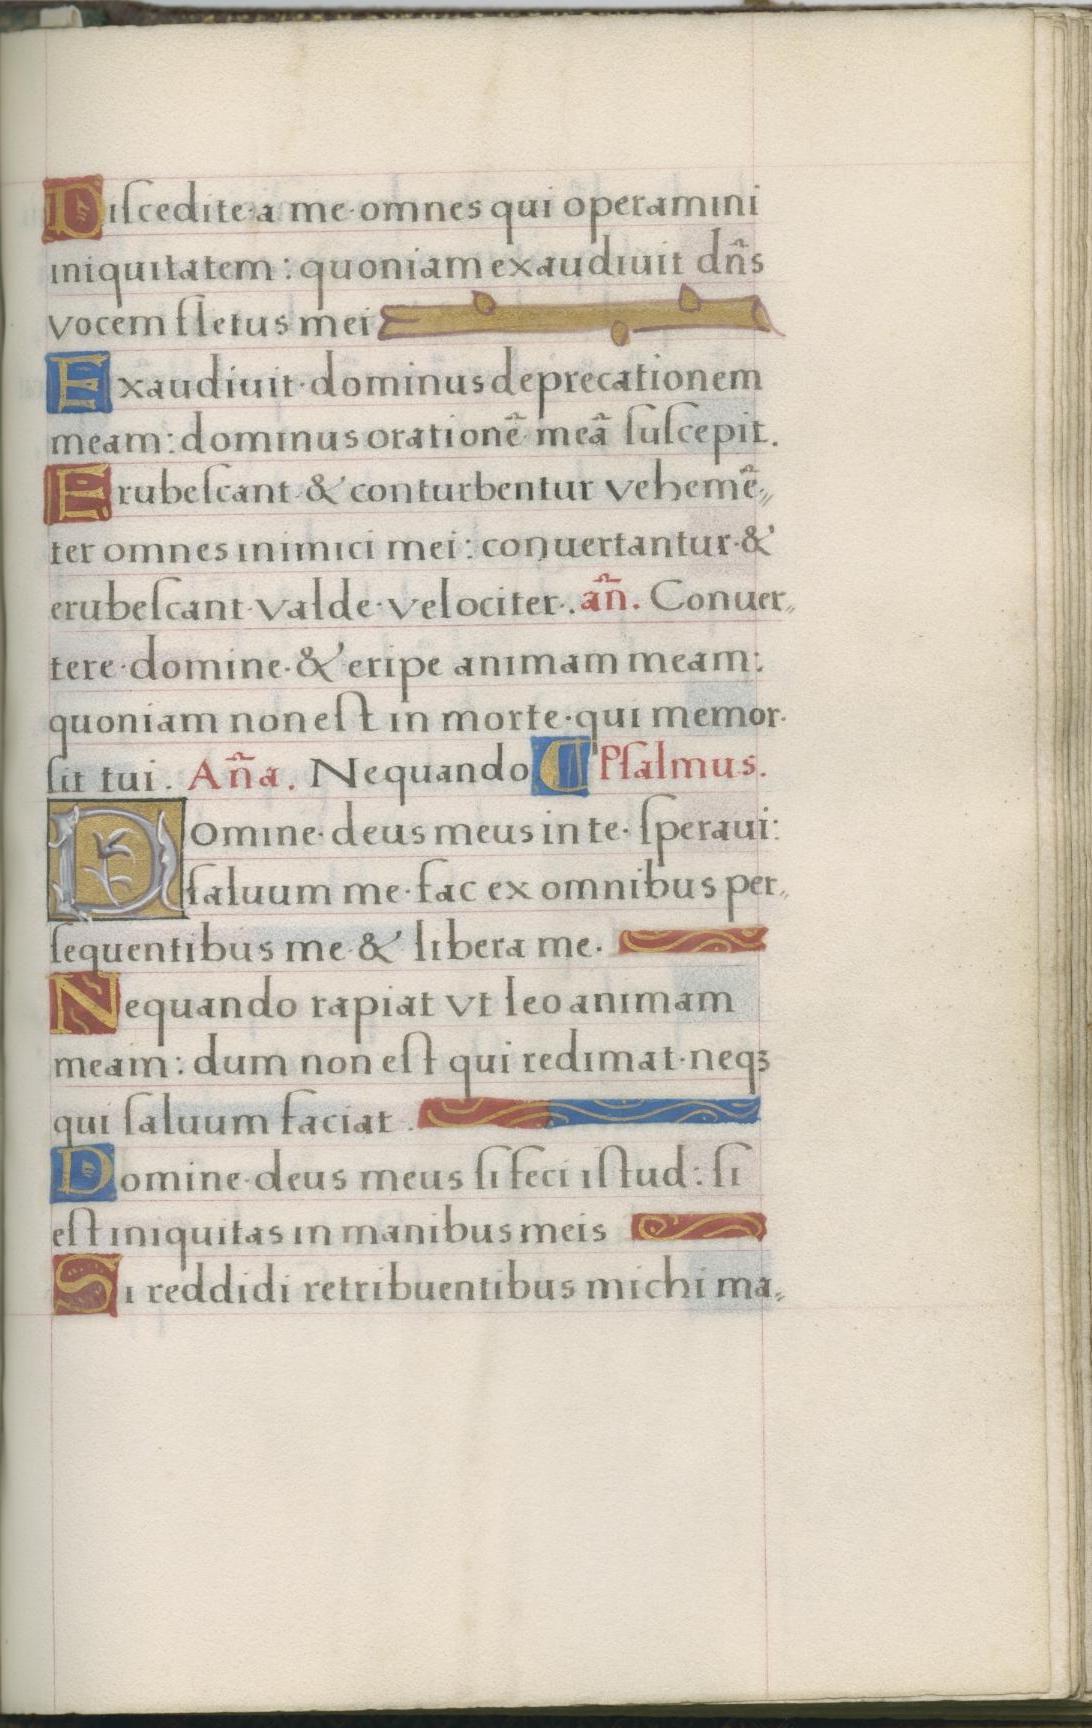 Diſcedite a me omnes qui operamini
iniquitatem: quoniam exaudiuit dn̄s
vocem fletus mei
Exaudiuit dominus deprecationem
meam: dominus orationē meā ſuſcepit.
Erubeſcant & conturbentur vehemē„
ter omnes inimici mei: conuertantur &
erubeſcant valde velociter. an̄. Conuer„
tere domine & eripe animam meam:
quoniam non eſt in morte qui memor
ſit tui. An̄a. Nequando ¶ Pſalmus.
Domine deus meus in te ſperaui:
ſaluum me fac ex omnibus per„
ſequentibus me & libera me.
Nequando rapiat vt leo animam
meam: dum non eſt qui redimat neqꝫ
qui ſaluum faciat.
Domine deus meus ſi feci iſtud: ſi
eſt iniquitas in manibus meis
Si reddidi retribuentibus michi ma„